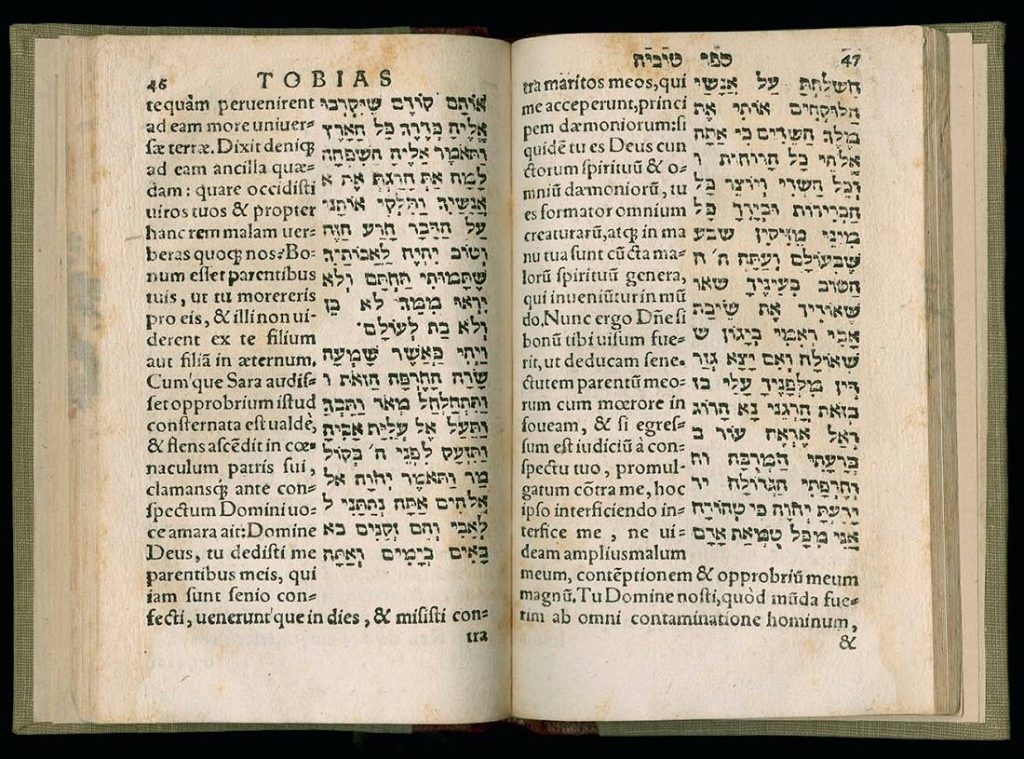 46
TOBIAS
tequàm peruenirent
ad eam more uniuer-
sæ terræ. Dixit deniq;
ad eam ancilla quæ-
dam: quare occidisti
uiros tuos & propter
hanc rem malam uer-
beras quoq; nos? Bo-
num esset parentibus
tuis, ut tu morereris
pro eis, & illi non ui-
derent ex te filium
aut filiã in æternum.
Cum'que Sara audis-
set opprobrium istud
consternata est ualdè,
& flens ascẽdit in cœ-
naculum patris sui,
clamansq; ante con-
spectum Domini uo-
ce amara ait: Domine
Deus, tu dedisti me
parentibus meis, qui
iam sunt senio con-
fecti, uenerunt'que in dies, & misisti con-
tra
אותם קודם שיקרבו
אליה כדרך כל הארץ
ותאמר אליה השפחה
למה את הרגת את א
אנשיך ותלקי אותנו
על הדבר הרע הזה
וטוב יהיה לאבותיך
שתמותי תחתם ולא
יראו ממך לא בן
ולא בת לעולם׃
ויהי כאשר שמעה
שרה החרפה הזאת ו
ותתחלחל מאד ותבך
ותעל אל עלית אביה
ותזעק לפני ה׳ בקול
מר ותאמר יהוה אל
אלהים אתה נתתני ל
לאבי והם זקנים בא
באים בימים ואתה
ספר טוביה
47
tra maritos meos, qui
me acceperunt, princi
pem dæmoniorum: si
quidẽ tu es Deus cun
ctorum spirituũ & o-
mniũ dæmoniorũ, tu
es formator omnium
creaturarũ, atq; in ma
nu tua sunt cũcta ma-
lorũ spirituũ genera,
qui inueniũtur in mũ
do. Nunc ergo Dñe si
bonũ tibi uisum fue-
rit, ut deducam sene-
ctutem parentũ meo-
rum cum mœrore in
foueam, & si egres-
sum est iudiciũ à con-
spectu tuo, promul-
gatum cõtra me, hoc
ipso interficiendo in-
terfice me, ne ui-
deam ampliusmalum
meum, contẽptionem & opprobriũ meum
magnũ. Tu Domine nosti, quòd mũda fue-
rim ab omni contaminatione hominum,
&
השלחת על אנשי
הלוקחים אותי את
מלך השדים כי אתה
אלהי כל הרוחות ו
וכל השדי ויוצר כל
הבריות ובידך כל
מיני מזיקין שבע
שבעולם ועתה ה׳ ה
הטוב בעיניך שאו
שאוריד את שיבת
אבי ואמי ביגון ש
שאולה ואם יצא גזר
דין מלפניך עלי בז
בזאת הרגני נא הרוג
ואל אראה עוד ב
ברעתי המרבה וח
וחרפתי הגדולה יד
ידעת יהוה כי טהורה
אני מכל טמאת אדם